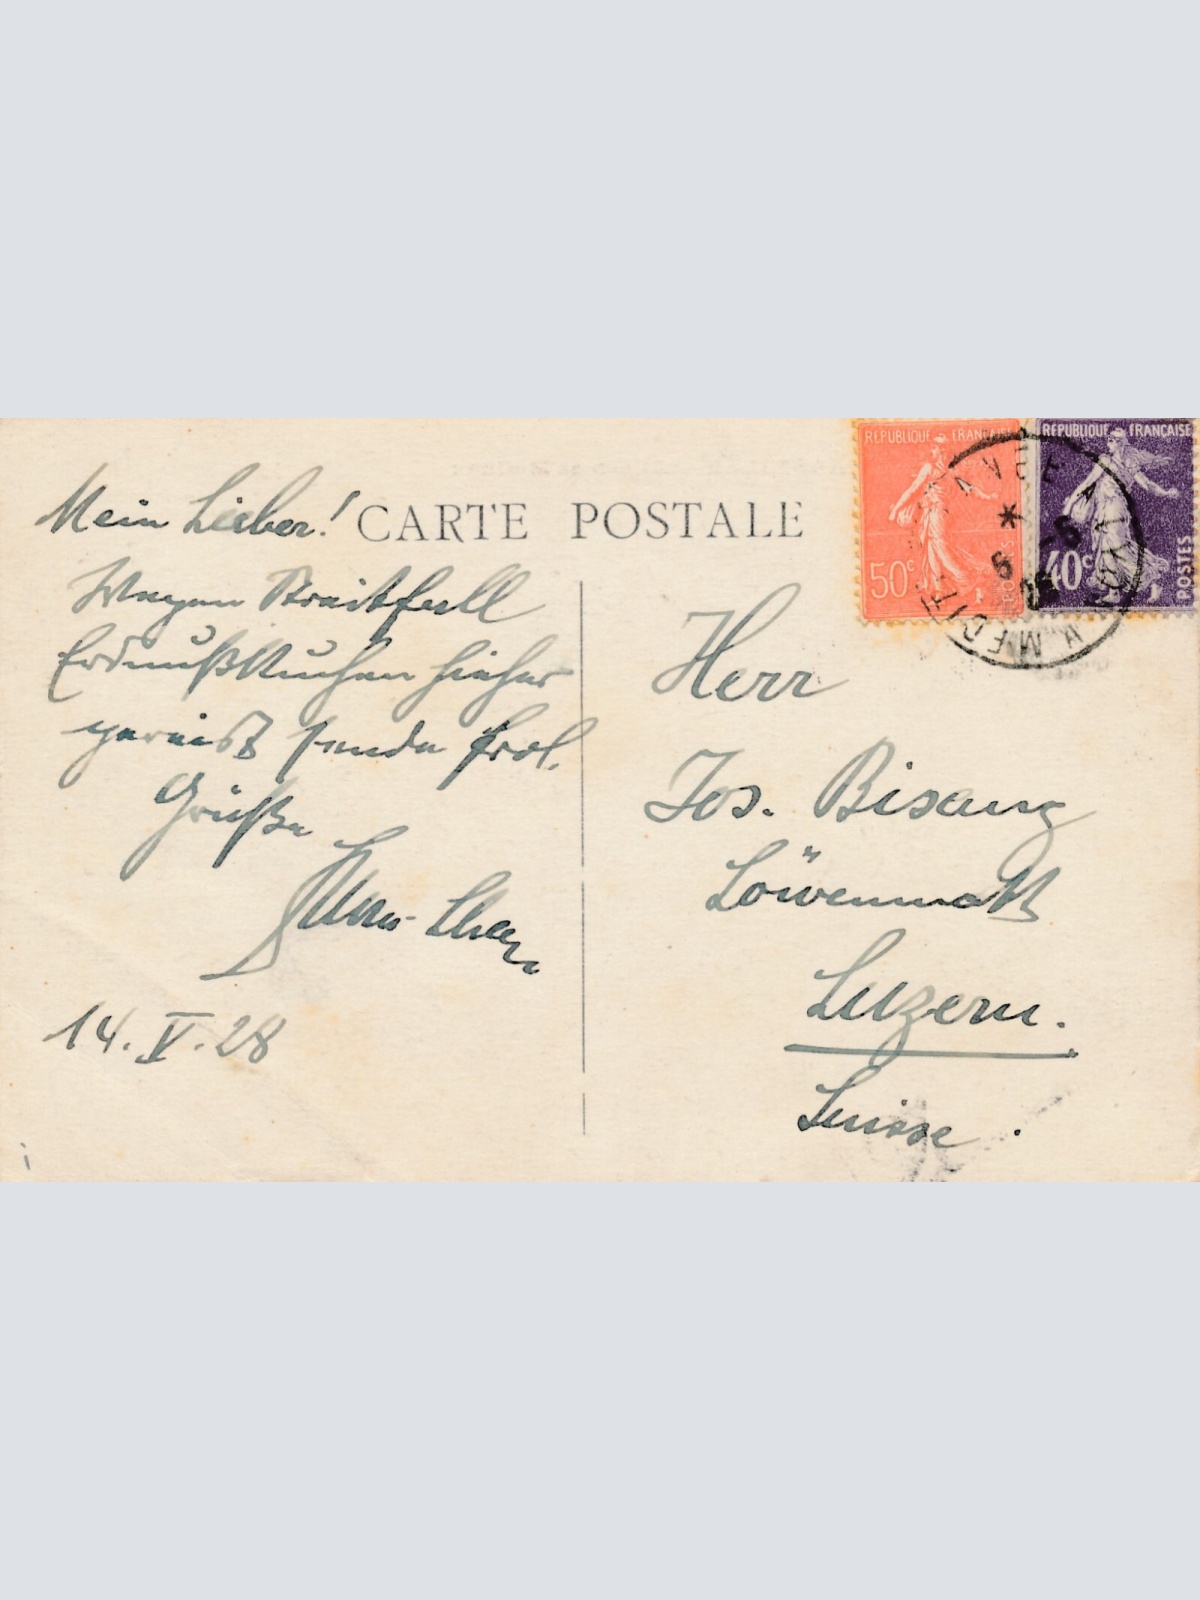 Mein Lieber!
CARTE POSTALE
Wegen Streitfall
Erdnußkuchen hieher
gereist sende frdl.
Grüße
14. V. 28
REPUBLIQUE FRANÇAISE
50c
REPUBLIQUE FRANÇAISE
40c
POSTES
Herr
Jos. Bisang
Löwenmatt
Luzern.
Suisse.